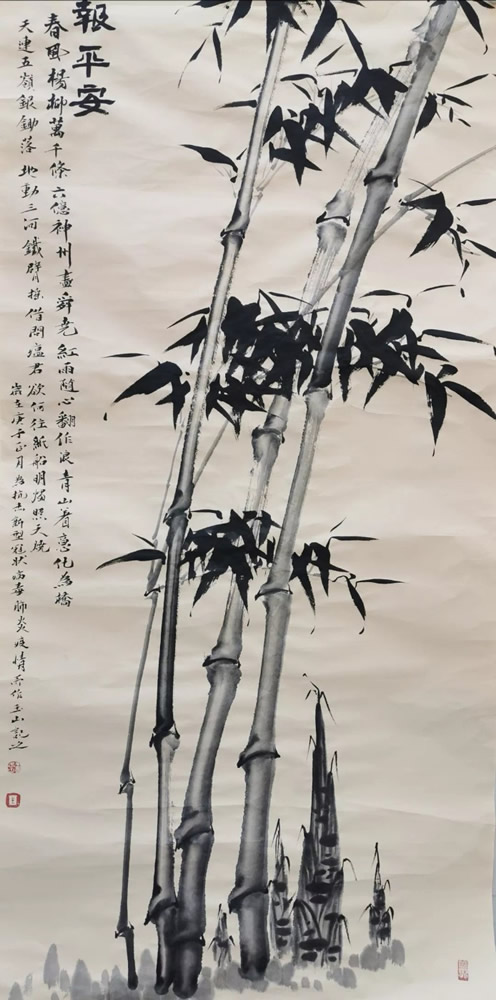 報平安
春風楊柳萬千條六億神州盡舜堯紅雨隨心翻作浪青山著意化為橋
天連五嶺銀鋤落地動三河鐵臂搖借問瘟君欲何往紙船明燭照天燒
歲在庚子正月為抗击新型冠状病毒肺炎疫情而作玉山記之